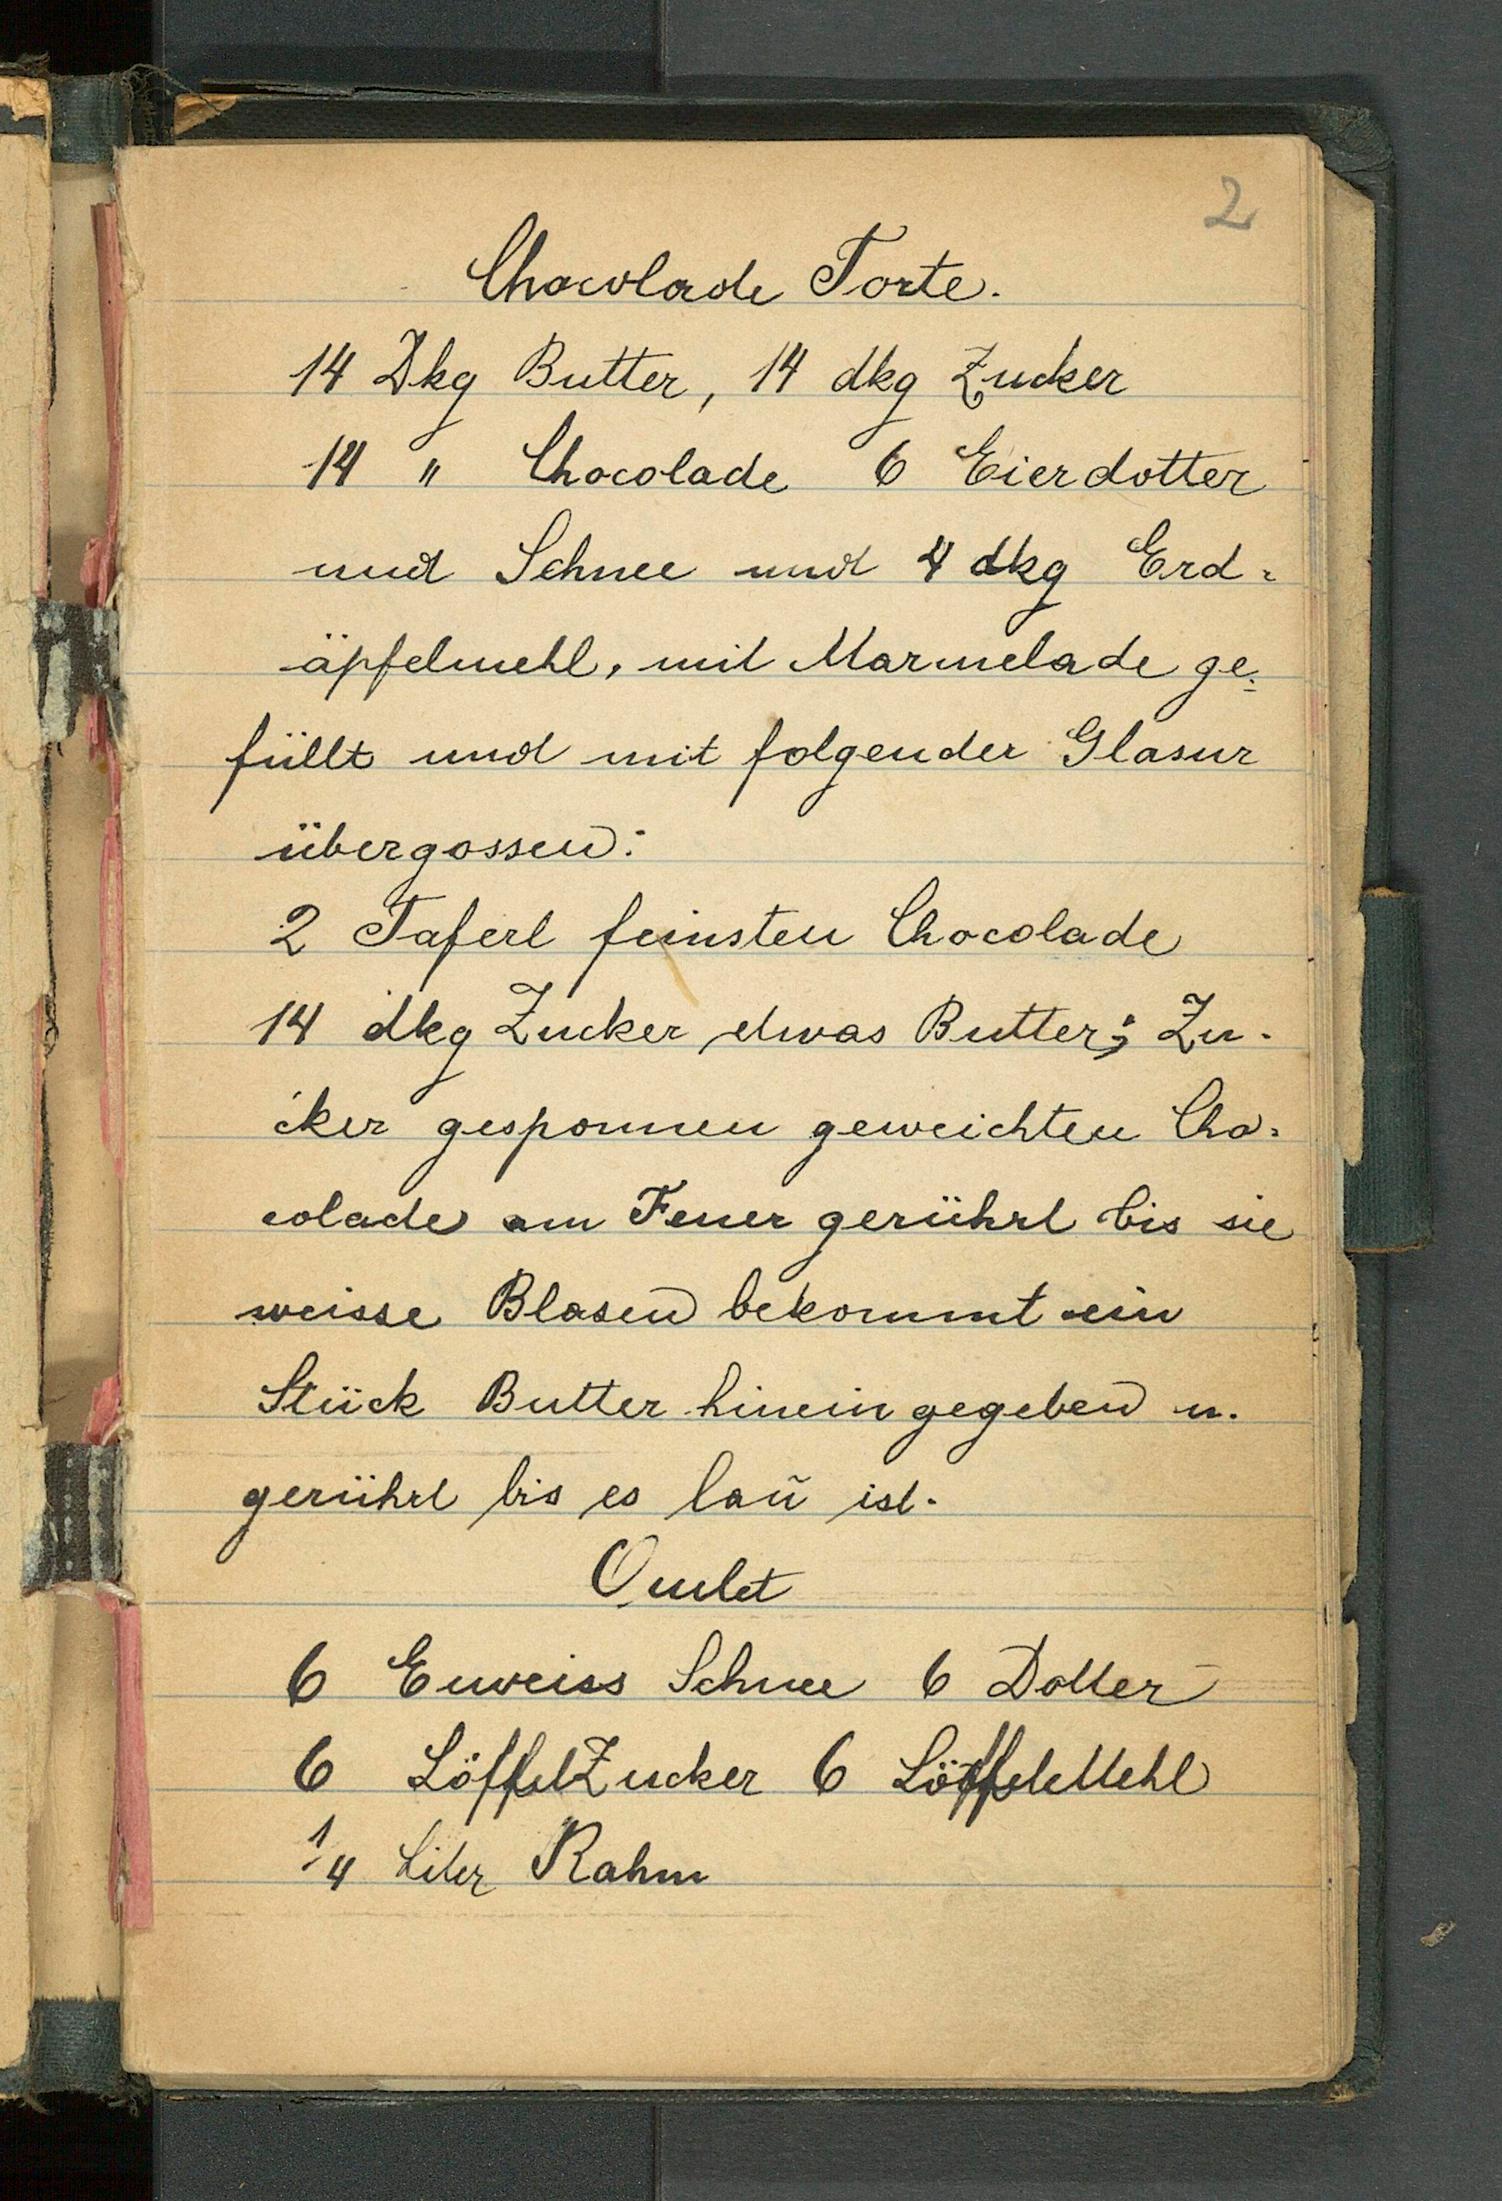 2
Chocolade Torte.
14 Dkg Butter, 14 dkg Zucker
14 " Chocolade 6 Eierdotter
und Schnee und 4 dkg Erd=
äpfelmehl, mit Marmelade ge=
füllt und mit folgender Glasur
übergossen:
2 Taferl feinsten Chocolade
14 dkg Zucker etwas Butter; Zu-
cker gesponnen geweichten Cho=
colade am Feuer gerührt bis sie
weisse Blasen bekommt ein
Stück Butter hinein gegeben u.
gerührt bis es lau ist.
Omlet
6 Eiweiss Schnee 6 Dotter
6 Löffel Zucker 6 Löffel Mehl
1/4 Liter Rahm